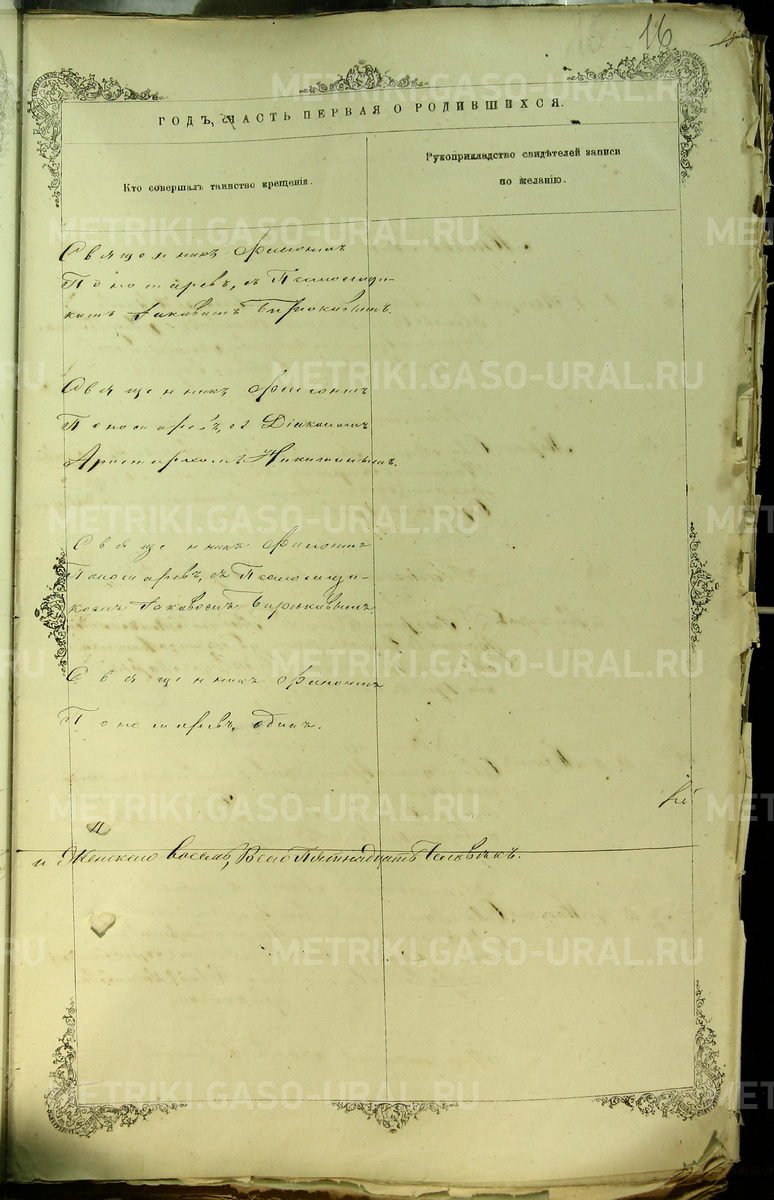 16
ГОДЪ, ЧАСТЬ ПЕРВАЯ О РОДИВШИХСЯ.
Кто совершалъ таинство крещенія.
Рукоприкладство свидѣтелей записи
по желанію.
Священникъ Филонинъ
Пономаревъ, съ Псаломщи-
комъ Іаковомъ Бирюковымъ.
Священникъ Филонинъ
Пономаревъ, съ Діакономъ
Аристархомъ Никитинымъ.
Священникъ Филонинъ
Пономаревъ, съ Псаломщи-
комъ Іаковомъ Бирюковымъ
Священникъ Филонинъ
Пономаревъ, одинъ.
и Женскаго восемь, Всего Пятнадцать Человѣкъ.
METRIKI.GASO-URAL.RU